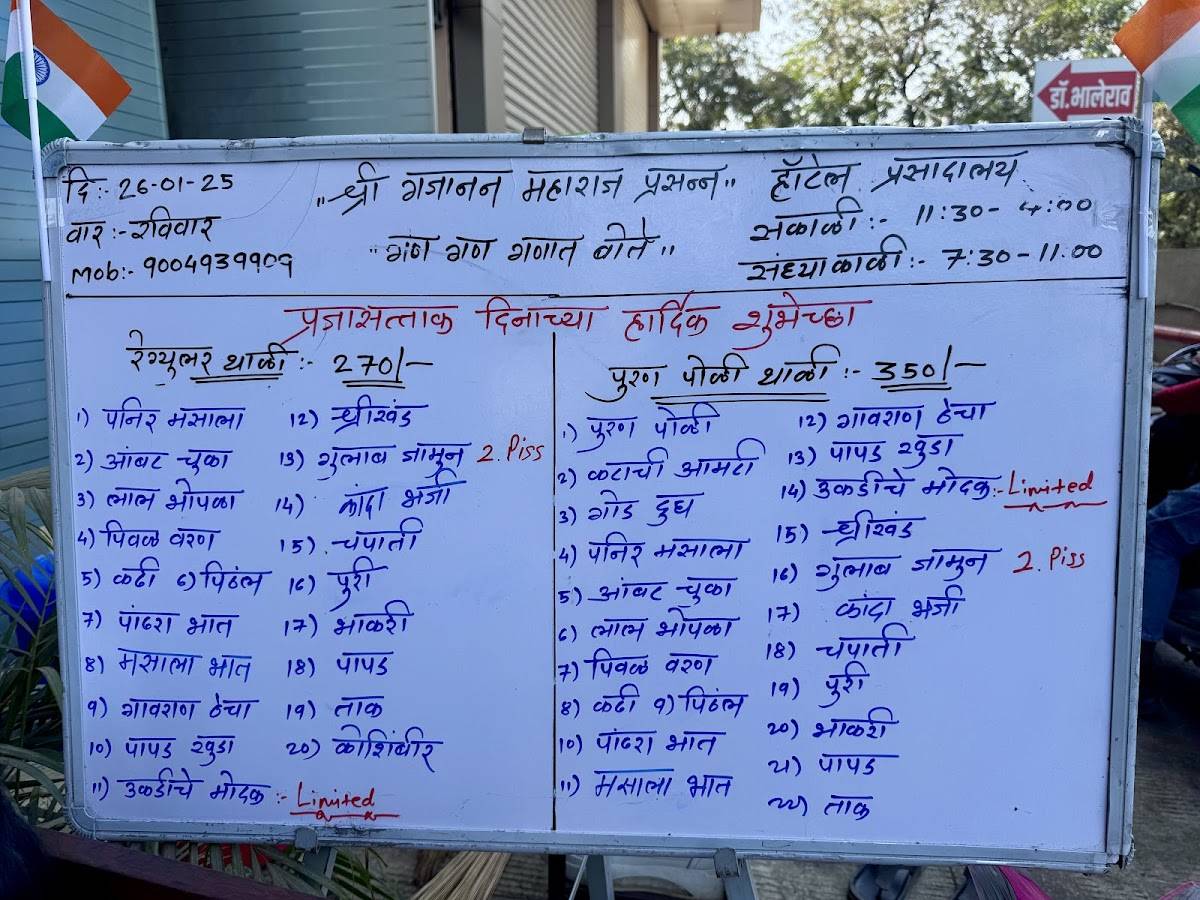 डॉ.भालेराव
दि: 26-01-25
वार:-रविवार
Mob:- 9004939909
"श्री गजानन महाराज प्रसन्न"
"गण गण गणात बोते"
हॉटेल प्रसादालय
सकाळी:- 11:30-4:00
संध्याकाळी:- 7:30-11:00
प्रजासत्ताक दिनाच्या हार्दिक शुभेच्छा
रेग्युलर थाळी:- 270/-
1) पनिर मसाला
2) आंबट चुका
3) लाल भोपळा
4) पिवळ वरण
5) कढी 6) पिठंल
7) पांढरा भात
8) मसाला भात
9) गावराण ठेचा
10) पापड खुडा
11) उकडीचे मोदक:- Limited
12) श्रीखंड
13) गुलाब जामुन 2. Piss
14) कांदा भजी
15) चपाती
16) पुरी
17) भाकरी
18) पापड
19) ताक
20) कोशिंबीर
पुरण पोळी थाळी:- 350/-
1) पुरण पोळी
2) कटाची आमटी
3) गोड दुध
4) पनिर मसाला
5) आंबट चुका
6) लाल भोपळा
7) पिवळ वरण
8) कढी 9) पिठंल
10) पांढरा भात
11) मसाला भात
12) गावराण ठेचा
13) पापड खुडा
14) उकडीचे मोदक:- Limited
15) श्रीखंड
16) गुलाब जामुन 2. Piss
17) कांदा भजी
18) चपाती
19) पुरी
20) भाकरी
21) पापड
22) ताक